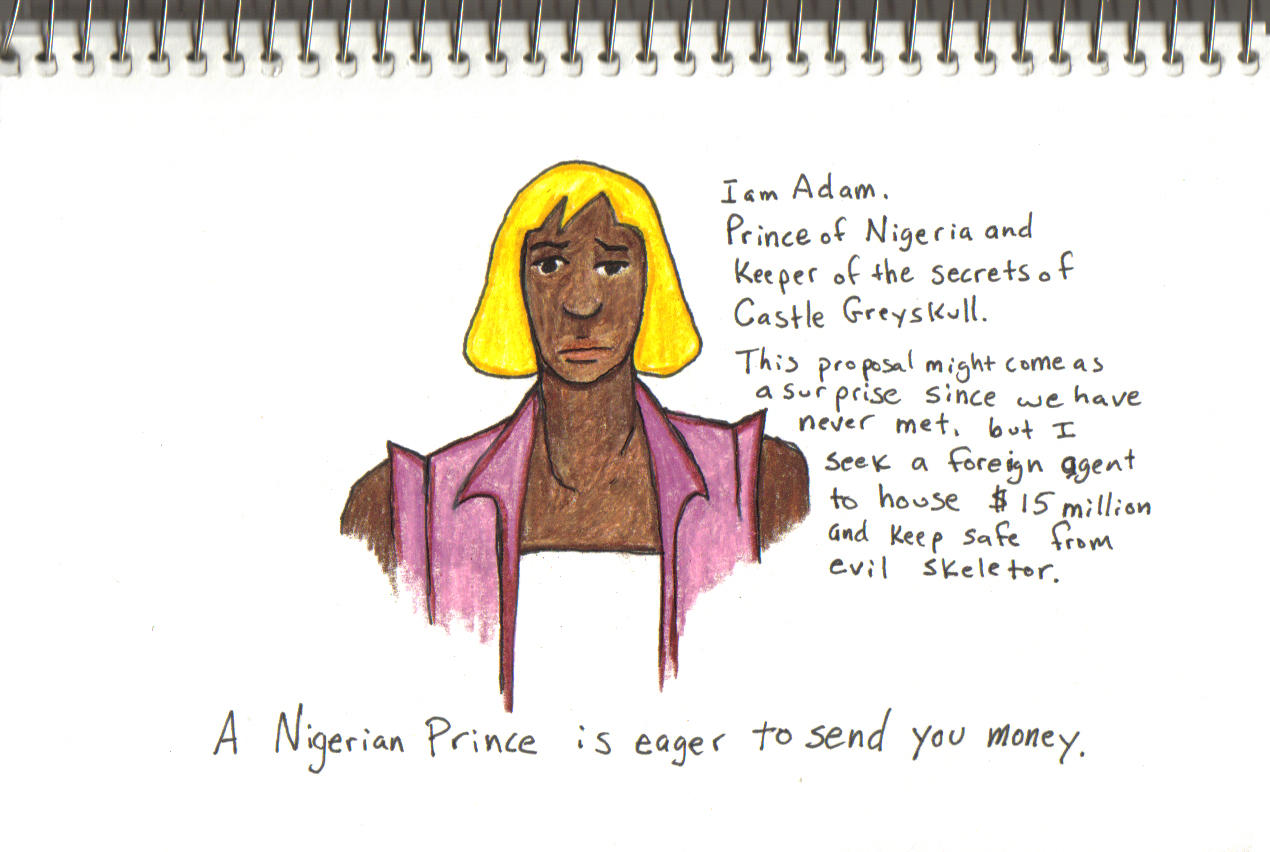 I am Adam.
Prince of Nigeria and
Keeper of the secrets of
Castle Greyskull.
This proposal might come as
a surprise since we have
never met, but I
seek a foreign agent
to house $15 million
and keep safe from
evil skeletor.
A Nigerian Prince is eager to send you money.